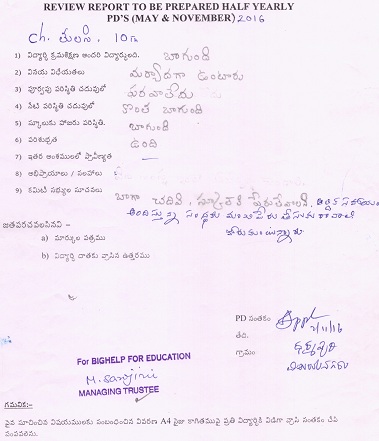 REVIEW REPORT TO BE PREPARED HALF YEARLY
PD'S (MAY & NOVEMBER) 2016
Ch. తులసి, 10th
1) విద్యార్థి క్రమశిక్షణ అందరి విద్యార్థులది. బాగుంది
2) వినయ విధేయతలు మర్యాదగా ఉంటారు
3) పూర్వపు పరిస్థితి చదువులో పరవాలేదు
4) నేటి పరిస్థితి చదువులో కొంత బాగుంది
5) స్కూలుకు హాజరు పరిస్థితి. బాగుంది
6) పరిశుభ్రత ఉంది
7) ఇతర అంశములలో ప్రావీణ్యత
8) అభిప్రాయాలు / సలహాలు
9) కమిటీ సభ్యుల సూచనలు బాగా చదివి,
జతపరచవలసినవి –
a) మార్కుల పత్రము
b) విద్యార్థి దాతకు వ్రాసిన ఉత్తరము
PD సంతకం
తేది. 2/11/16
గ్రామం
For BIGHELP FOR EDUCATION
M. Sanjini
MANAGING TRUSTEE
గమనిక:-
పైన సూచించిన విషయములకు సంబంధించిన వివరణ A4 సైజు కాగితముపై ప్రతి విద్యార్థికి విడిగా వ్రాసి సంతకం చేసి
పంపవలెను.